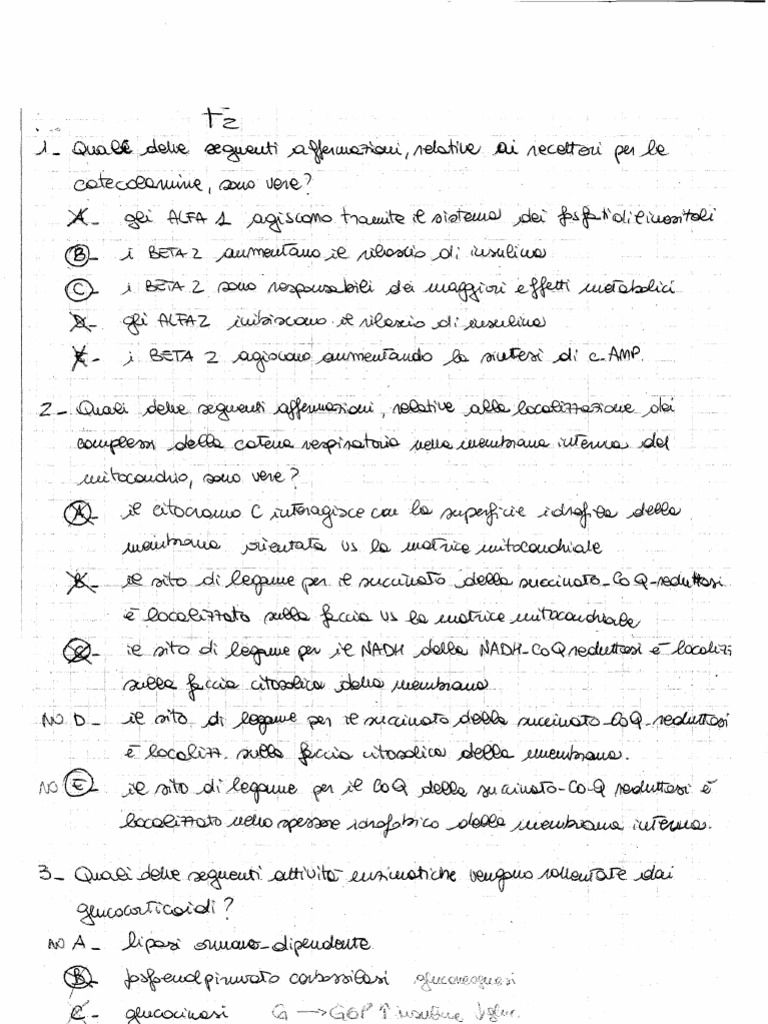 T2
1- Quali delle seguenti affermazioni, relative ai recettori per le
catecolamine, sono vere?
A- gli ALFA 1 agiscono tramite il sistema dei fosfatidilinositoli
B- i BETA 2 aumentano il rilascio di insulina
C- i BETA 2 sono responsabili dei maggiori effetti metabolici
D- gli ALFA2 inibiscono il rilascio di insulina
E- i BETA 2 agiscono aumentando la sintesi di c-AMP.
2- Quali delle seguenti affermazioni, relative alla localizzazione dei
complessi della catena respiratoria nella membrana interna del
mitocondrio, sono vere?
A- il citocromo C interagisce con la superficie idrofila della
membrana orientata vs la matrice mitocondriale
B- il sito di legame per il succinato della succinato-CoQ-reduttasi
è localizzato sulla faccia vs la matrice mitocondriale
C- il sito di legame per il NADH della NADH-CoQ reduttasi è localizz
sulla faccia citosolica della membrana
NO D- il sito di legame per il succinato della succinato-CoQ-reduttasi
è localizz. sulla faccia citosolica della membrana.
NO E- il sito di legame per il CoQ della succinato-Co-Q reduttasi è
localizzato nello spessore idrofobico della membrana interna.
3- Quali delle seguenti attività enzimatiche vengono rallentate dai
glucocorticoidi?
NO A- lipasi ormono-dipendente
B- fosfoenolpiruvato carbossilasi gluconeogenesi
C- glucocinasi G → G6P ↑ insulina